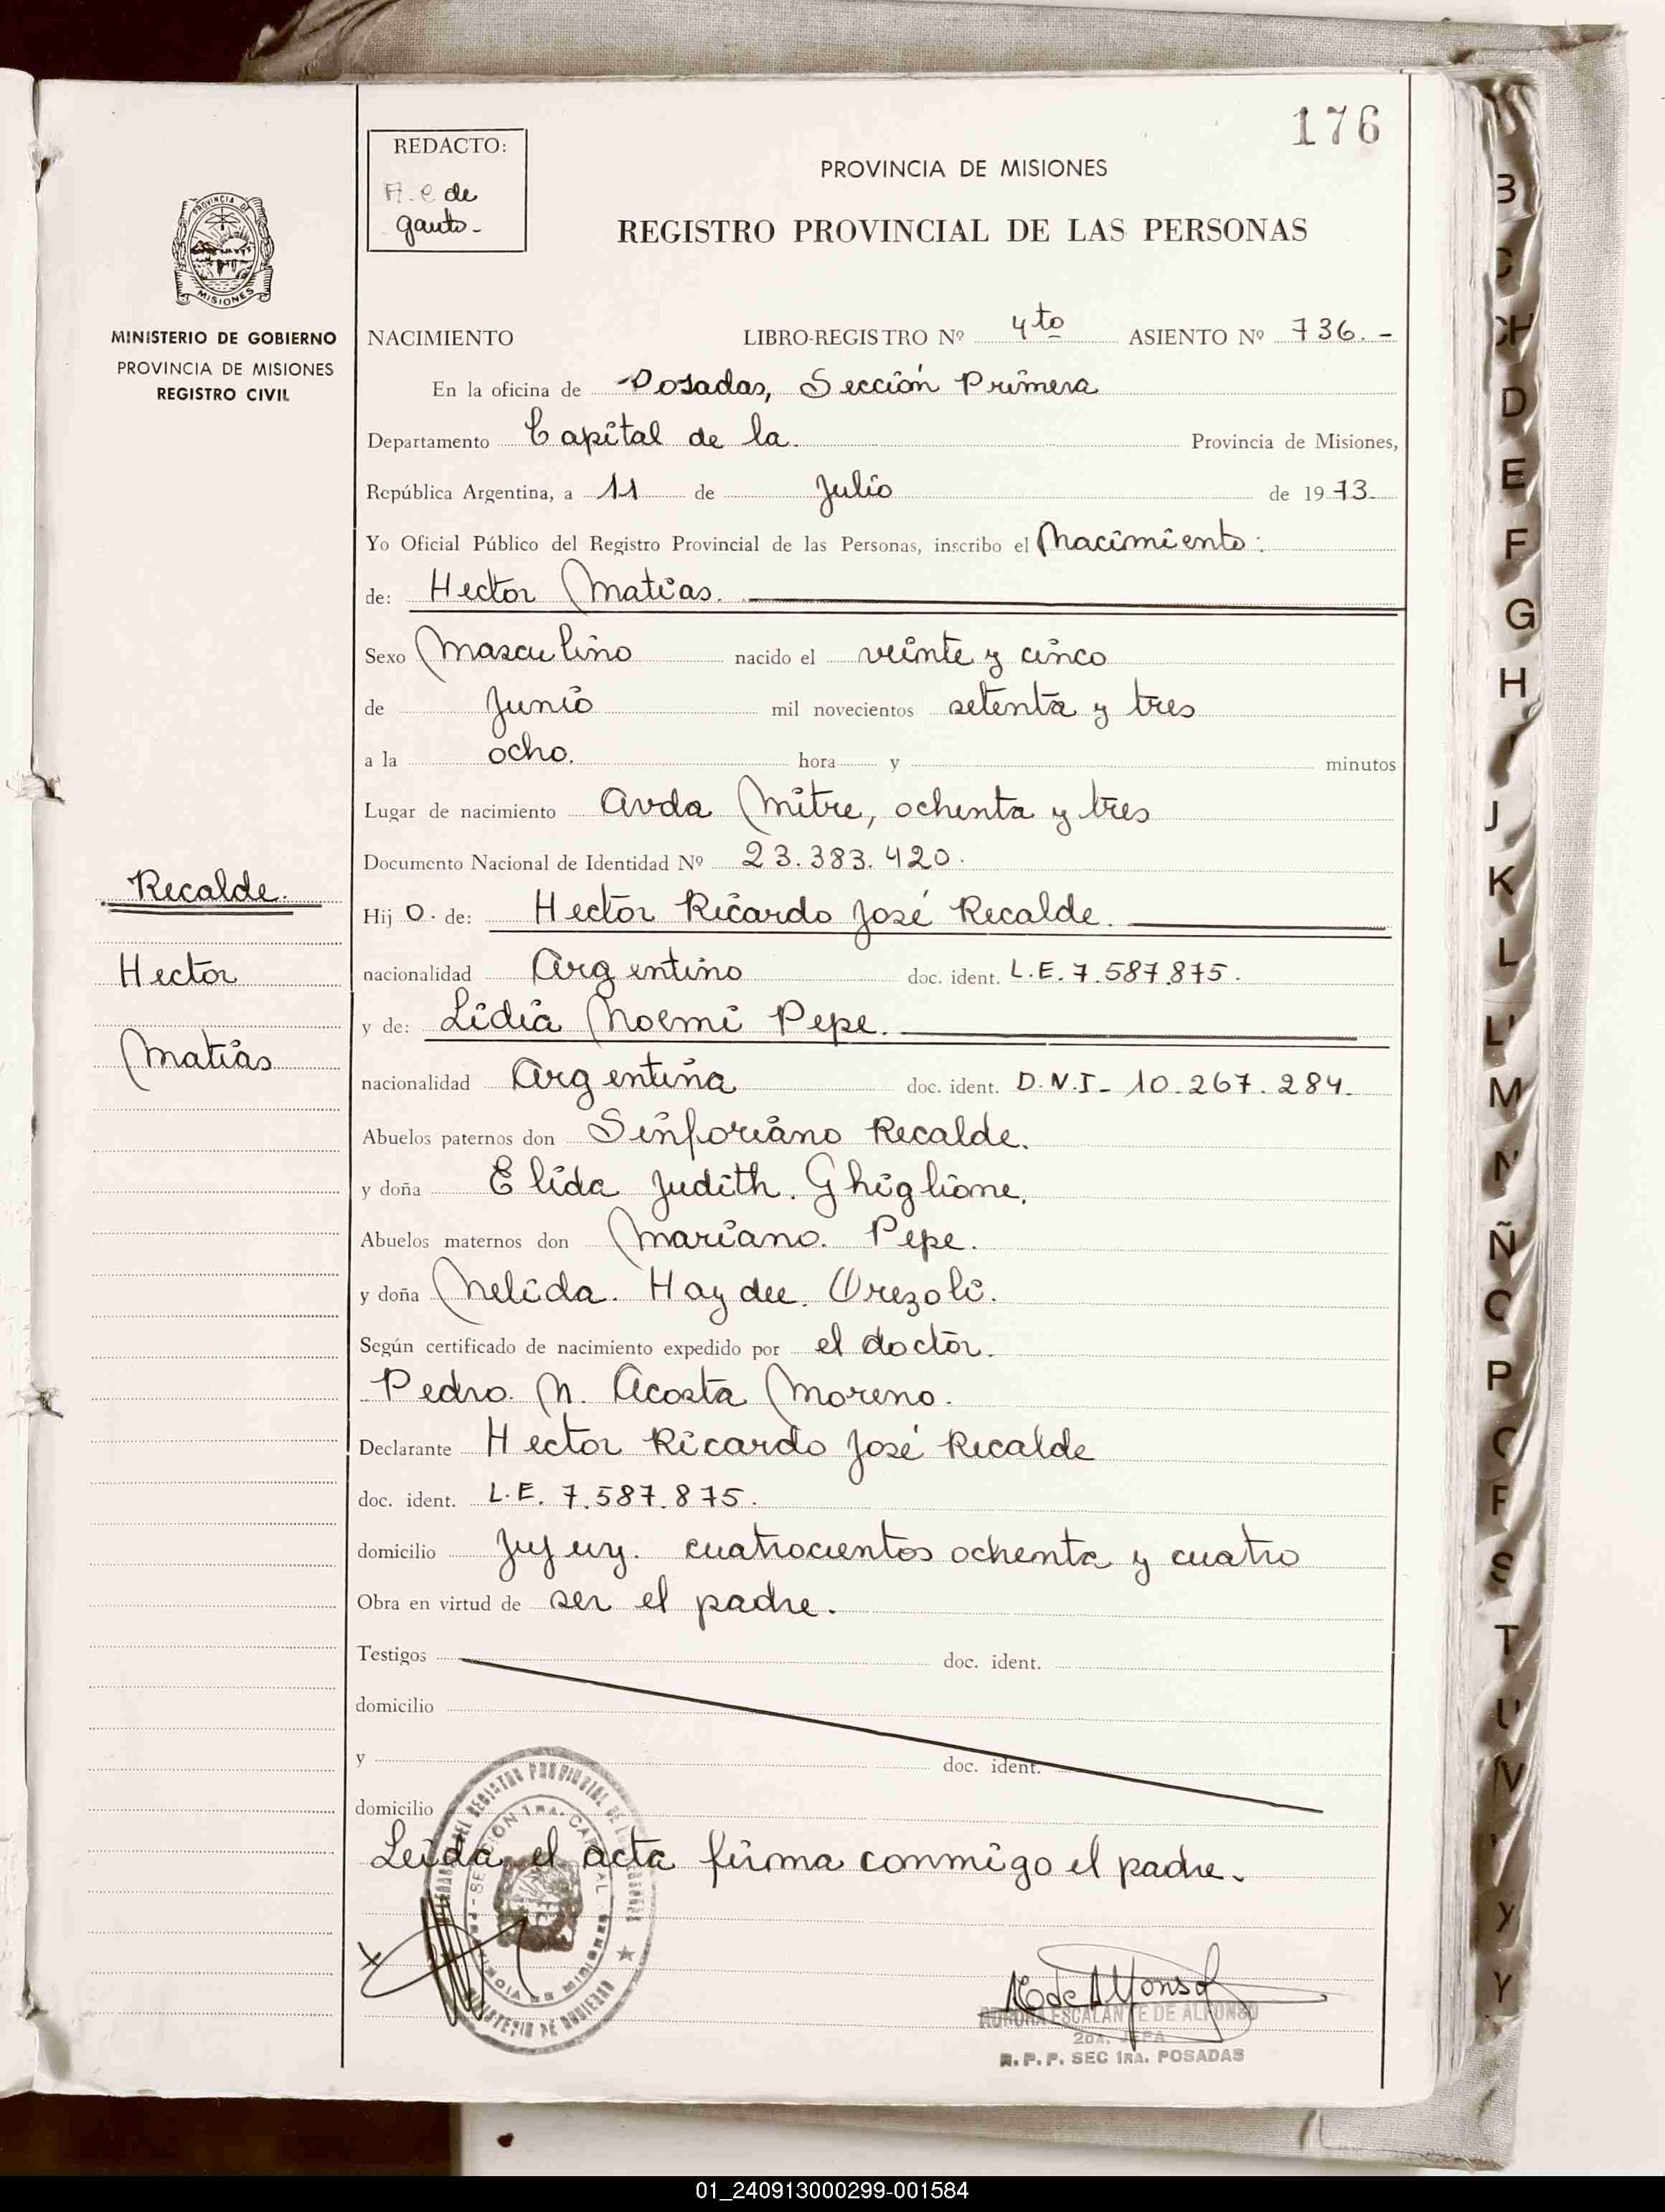 176
REDACTO:
A. e de
gauto-
PROVINCIA DE MISIONES
REGISTRO PROVINCIAL DE LAS PERSONAS
PROVINCIA DE
MISIONES
MINISTERIO DE GOBIERNO
PROVINCIA DE MISIONES
REGISTRO CIVIL
NACIMIENTO LIBRO-REGISTRO Nº 4to ASIENTO Nº 736.-
En la oficina de Posadas, Sección Primera
Departamento Capital de la. Provincia de Misiones,
República Argentina, a 11 de Julio de 1973.
Yo Oficial Público del Registro Provincial de las Personas, inscribo el Nacimiento:
de: Hector Matias.
Sexo Masculino nacido el veinte y cinco
de Junio mil novecientos setenta y tres
a la ocho. hora y minutos
Lugar de nacimiento Avda Mitre, ochenta y tres
Documento Nacional de Identidad Nº 23.383.420.
Recalde.
Hector
Matias
Hij o. de: Hector Ricardo José Recalde.
nacionalidad Argentino doc. ident. L.E. 7.587.875.
y de: Lidia Noemi Pepe.
nacionalidad Argentina doc. ident. D.N.I- 10.267.284.
Abuelos paternos don Sinforiano Recalde.
y doña Elida Judith. Ghiglione.
Abuelos maternos don Mariano. Pepe.
y doña Nelida. Haydee. Orezoli.
Según certificado de nacimiento expedido por el doctor.
Pedro. N. Acosta Moreno.
Declarante Hector Ricardo José Recalde
doc. ident. L.E. 7.587.875.
domicilio Jujuy. cuatrocientos ochenta y cuatro
Obra en virtud de ser el padre.
Testigos doc. ident.
domicilio
y doc. ident.
domicilio
Leida el acta firma conmigo el padre.
REGISTRO PROVINCIAL DE
SECCION 1RA. CAPITAL
MINISTERIO DE GOBIERNO
AEde Alfonso
AURORA ESCALANTE DE ALFONSO
2DA. JEFA
R.P.P. SEC 1RA. POSADAS
B
C
CH
D
E
F
G
H
I
J
K
L
LL
M
N
Ñ
O
P
Q
R
S
T
U
V
Y
Y
01_240913000299-001584